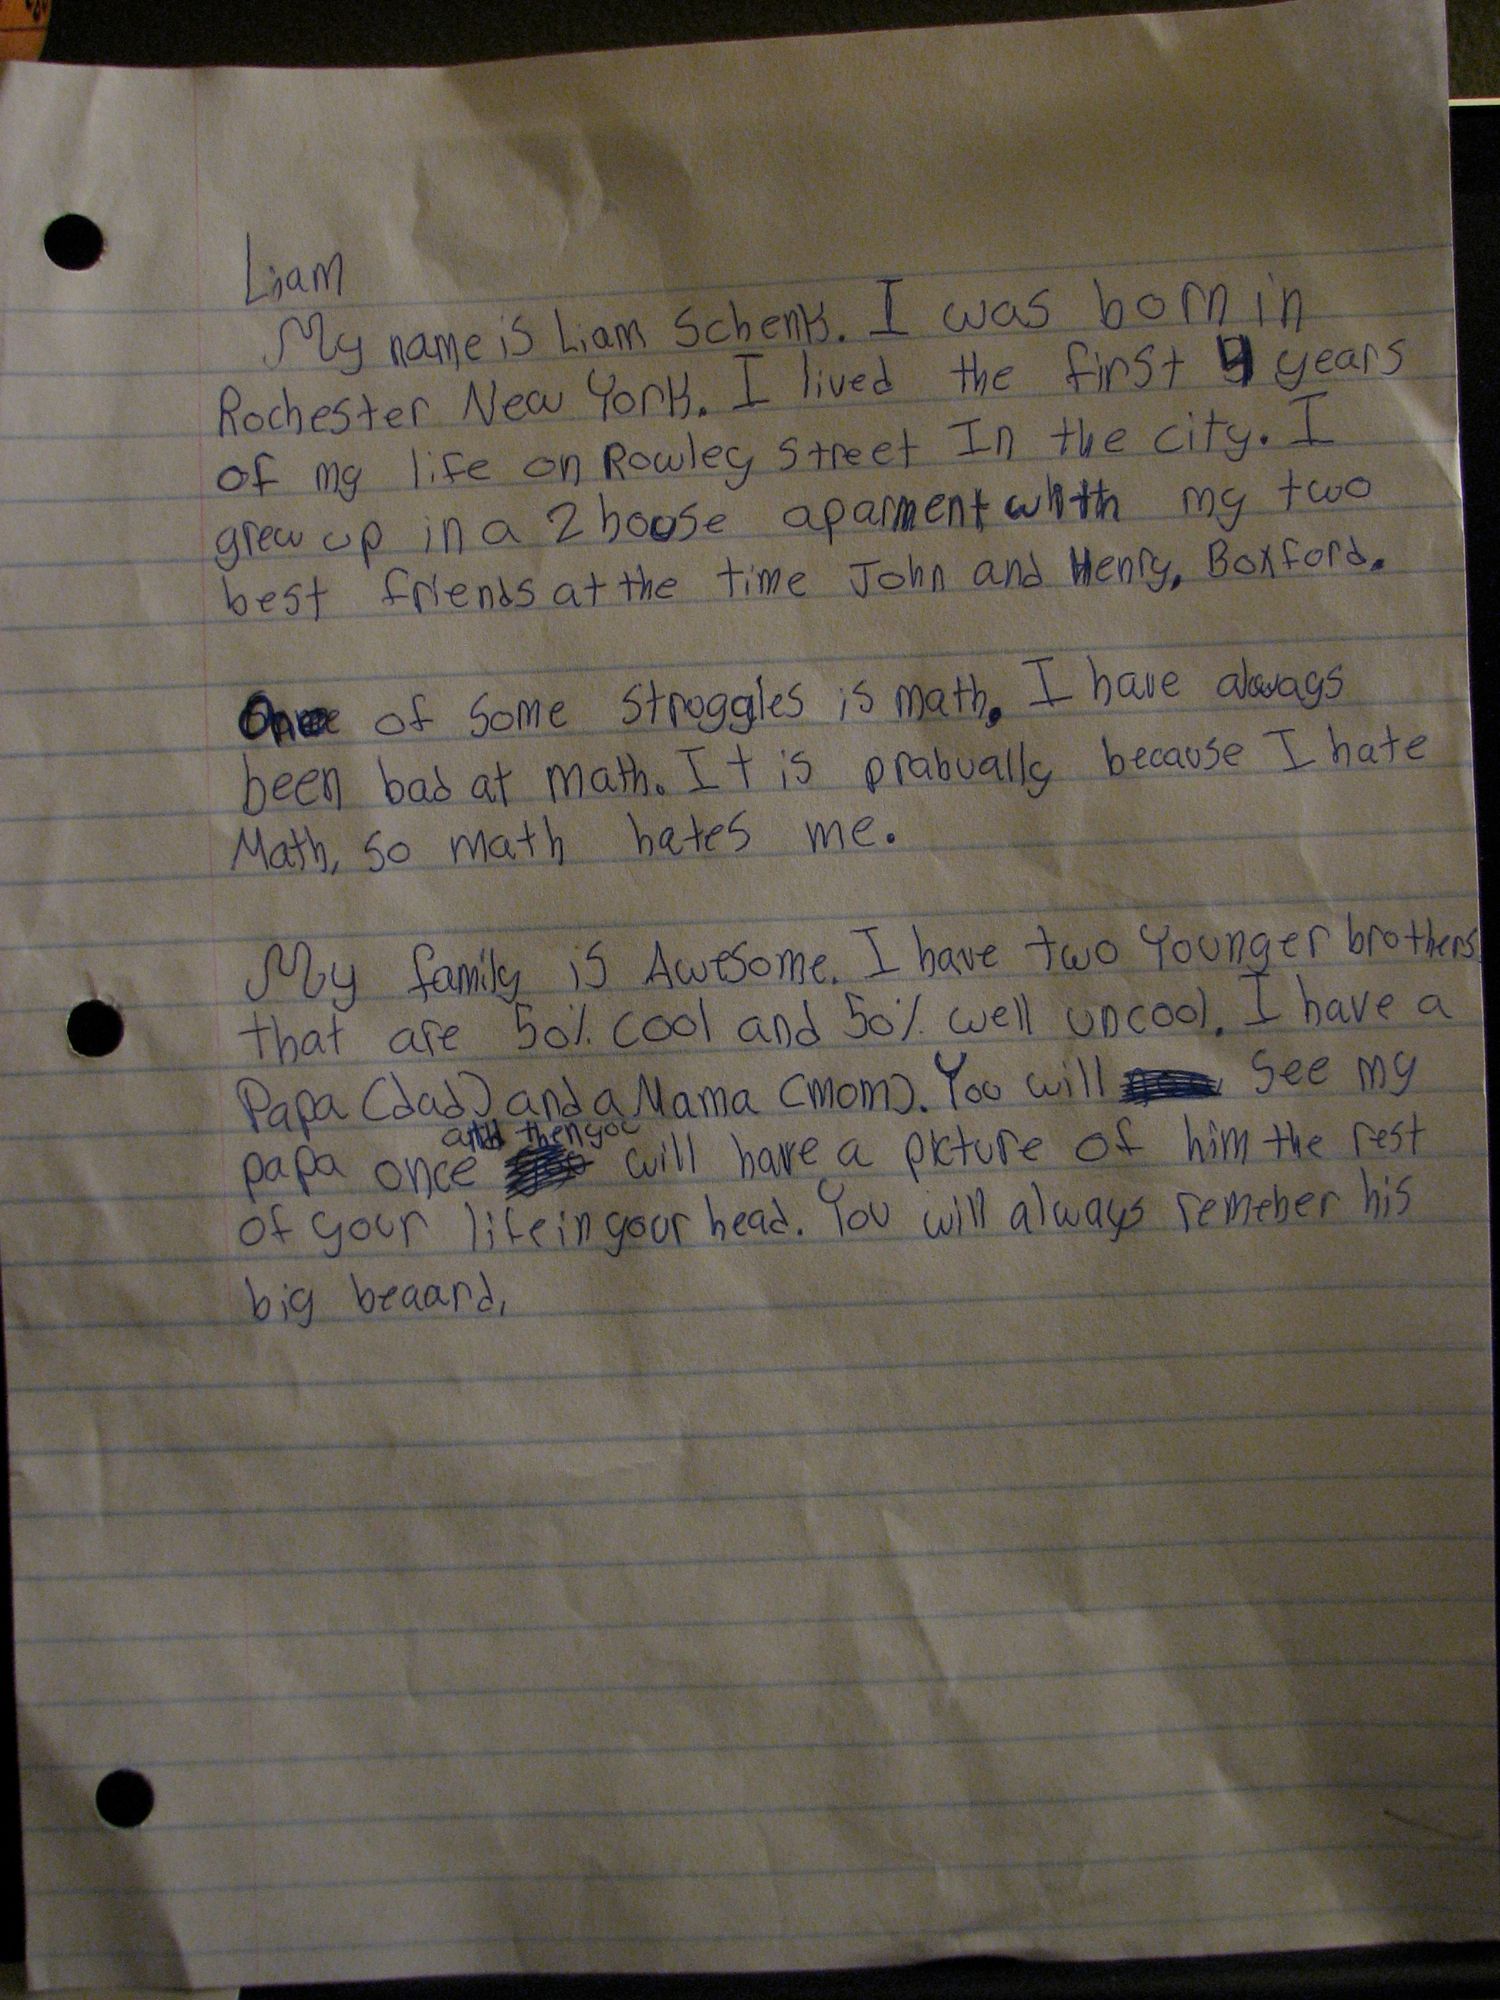 Liam
My name is Liam Schenk. I was born in
Rochester New York. I lived the first 4 years
of my life on Rowley Street In the city. I
grew up in a 2 house aparment with my two
best friends at the time John and Henry, Boxford.
One of some struggles is math. I have always
been bad at math. It is prabually because I hate
Math, so math hates me.
My family is Awesome. I have two Younger brothers
that are 50% cool and 50% well uncool. I have a
Papa (dad) and a Mama (mom). You will see my
and then you
papa once will have a picture of him the rest
of your life in your head. You will always remeber his
big beaard.